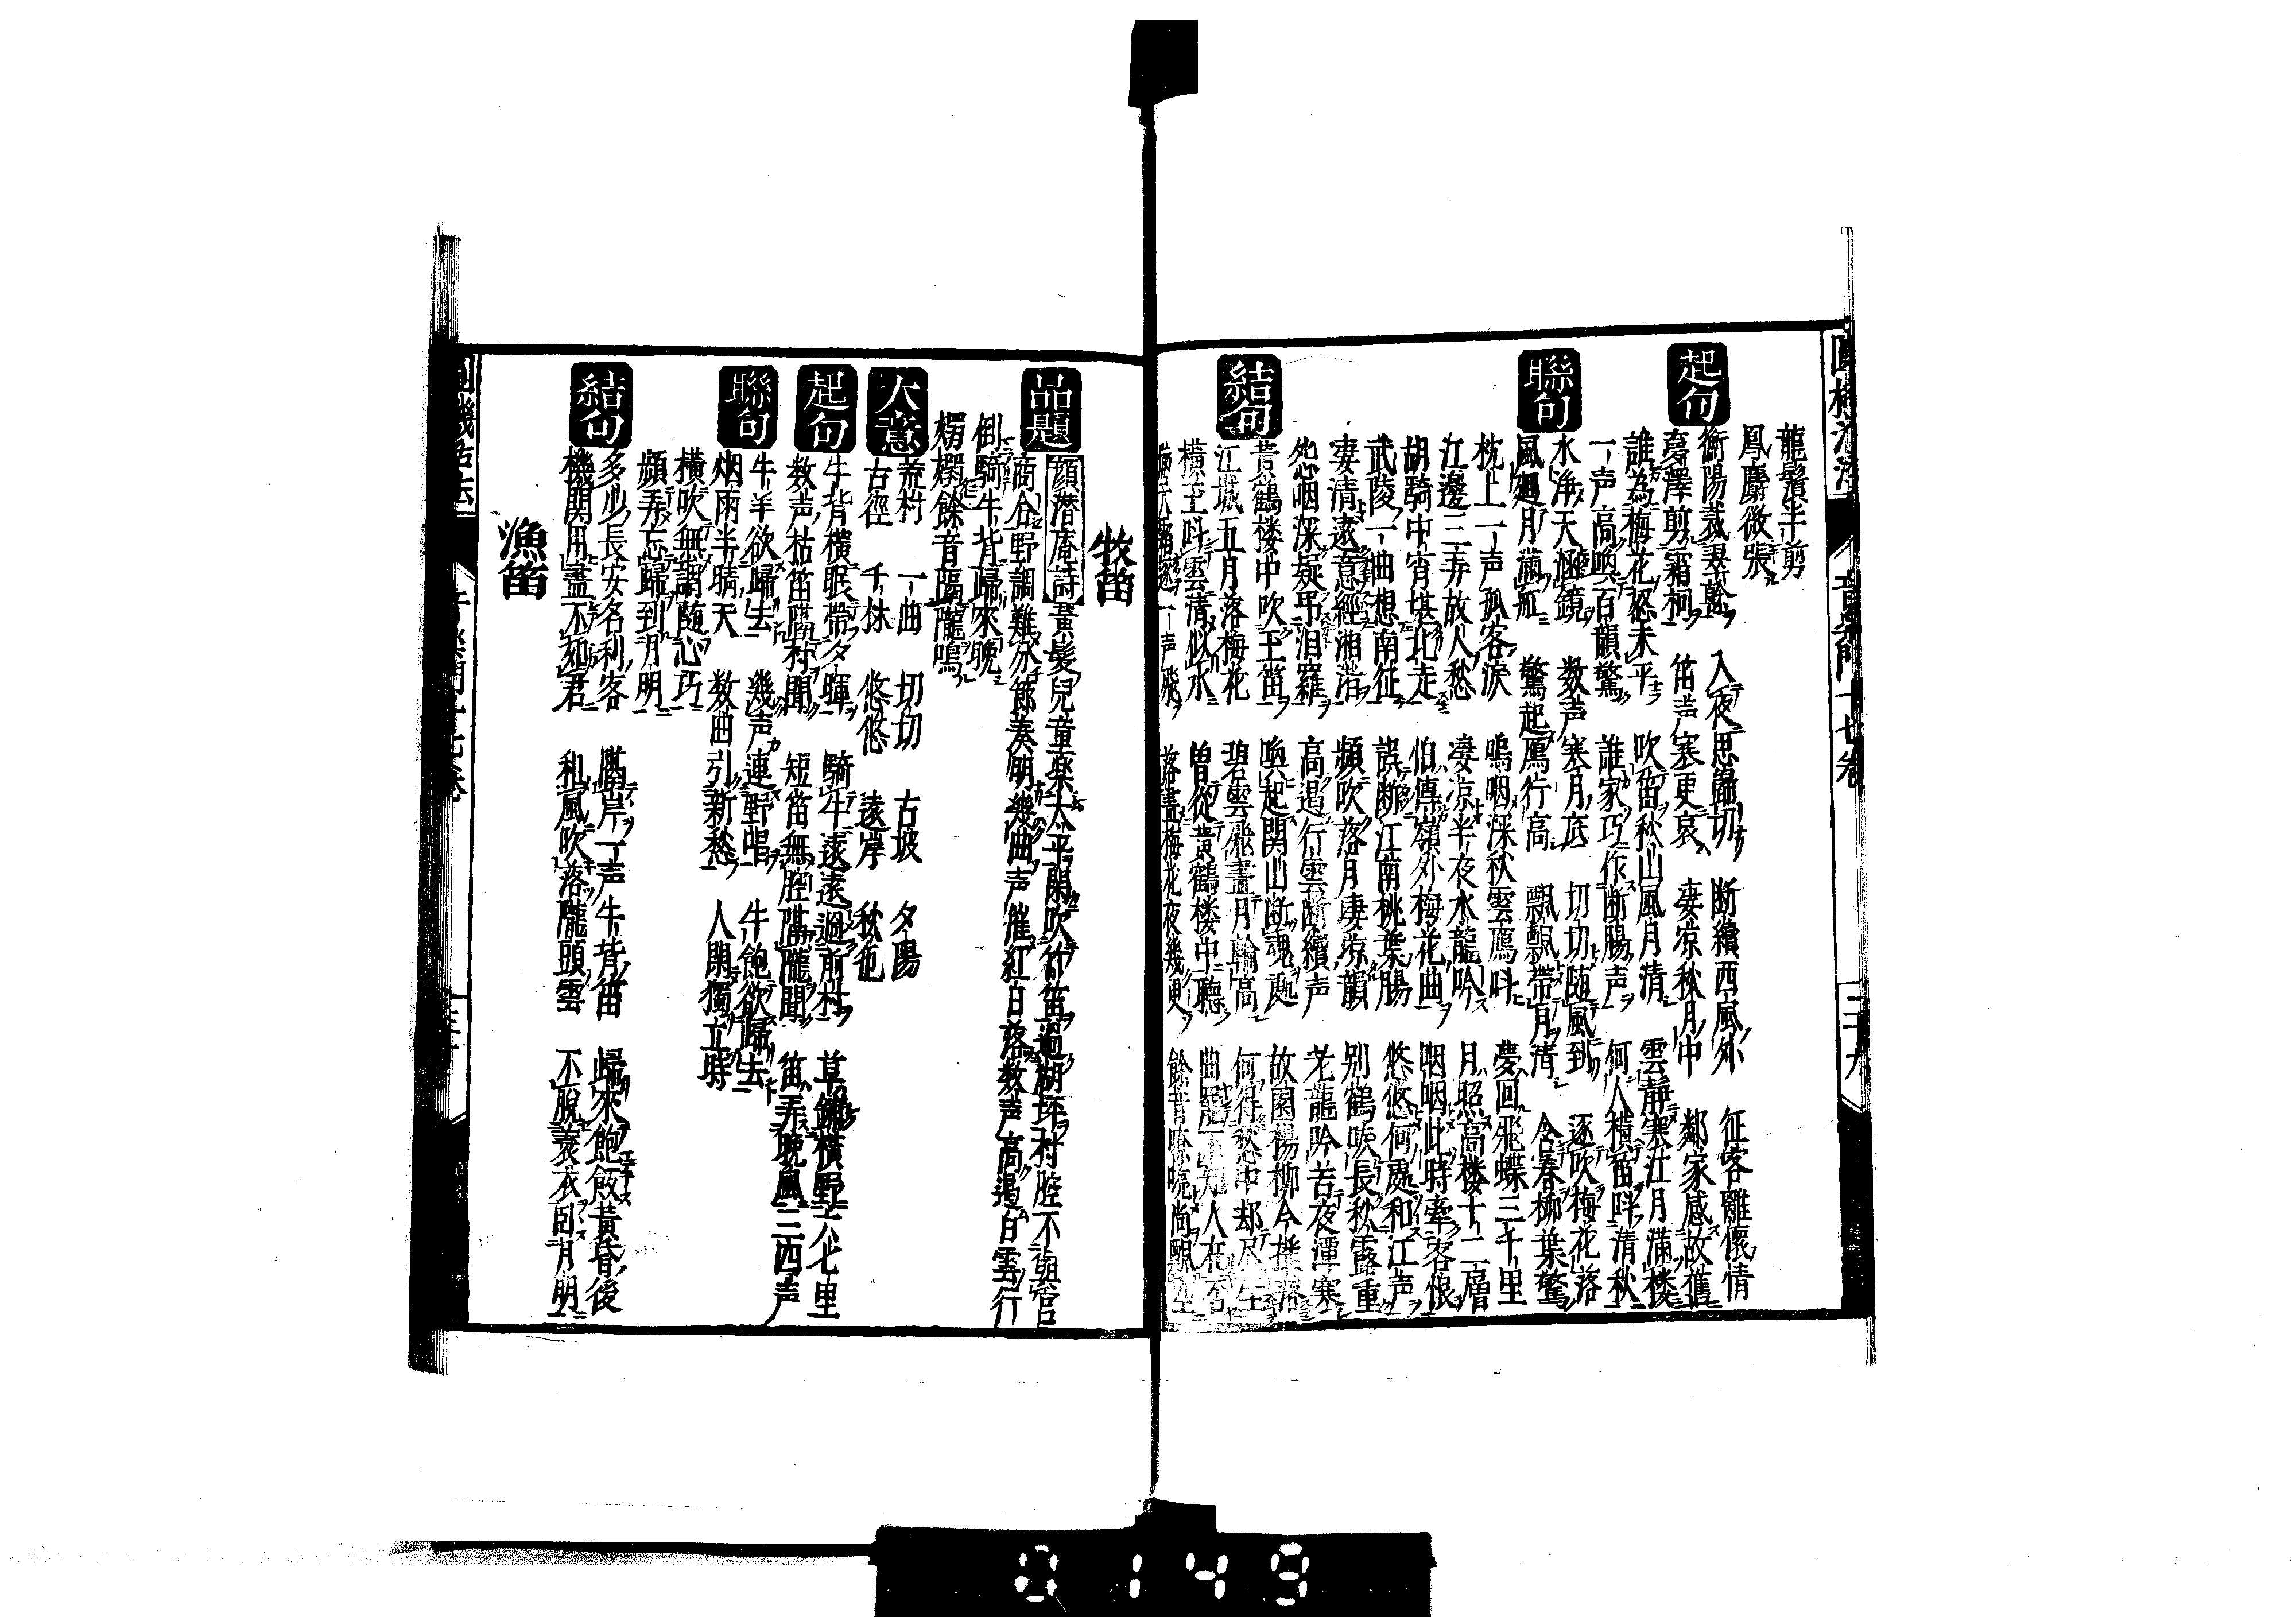 龍鬚半剪
鳳麝微張
起句
衡陽裁翠幹 入夜思歸切 断續西風外 征客難懷情
夢澤剪霜柯 笛声塞更哀 凄凉秋月中 鄰家感故舊
誰為梅花怒未平 吹笛秋山風月清 雲靜寒江月滿楼
一声高喚百韻驚 誰家巧作断腸声 何人橫笛呌清秋
聯句
水浄天涵鏡 数声寒月底 切切随風到 逐吹梅花落
風廻月滿缸 驚起鴈行高 飄飄帶月清 含春柳葉驚
枕上一声孤客淚 嗚咽深秋雲鴈呌 夢回飛蝶三千里
江邊三弄故人愁 凄凉半夜水龍吟 月照高楼十二層
胡騎中宵堪北走 伯傳嶺外梅花曲 咽咽此時牽客恨
武陵一曲想南征 誤断江南桃葉腸 悠悠何處和江声
凄清遠意經湘浦 頻吹落月凄凉韻 别鶴唳長秋露重
咽深疑吊汨羅 高遏行雲断續声 老龍吟苦夜潭寒
結句
昔鶴楼中吹玉笛 喚起関山断魂處 故園楊柳今揺落
江城五月落梅花 碧雲飛盡月輪高 何得愁中却尽生
橫玉呌雲清似水 曽從黄鶴楼中聽 曲罷不知人在否
滿天霜逐一声飛 落盡梅花夜幾更 餘音嘹喨尚飄空
圓機活法
音樂門十七卷
二十九
牧笛
品題
顔潜庵詩 黃髮兒童楽太平 閑吹竹笛過湖坪 村腔不與官
商合 野調難分節奏明 幾曲声催紅日落 数声高遏白雲行
倒騎牛背歸來晩
餘音隔隴鳴
大意
荒村 一曲 切切 古坡 夕陽
古徑 千林 悠悠 遠岸 秋色
起句
牛背橫眠帶夕暉 騎牛遠遠過前村 草鋪橫野六七里
数声枯笛隔村聞 短笛無腔隔隴聞 笛弄晩風三四声
聯句
牛羊欲歸去 幾声連野唱 牛飽欲歸去
烟雨半晴天 数曲引新愁 人閑獨立時
橫吹無調随心巧
頻弄忘歸到月明
結句
多少長安名利客 隔岸一声牛背笛 歸來飽飯黃昏後
機関用盡不如君 和風吹落隴頭雲 不脫蓑衣臥月明
漁笛
圓機活法
音樂門十七卷
三十
0149